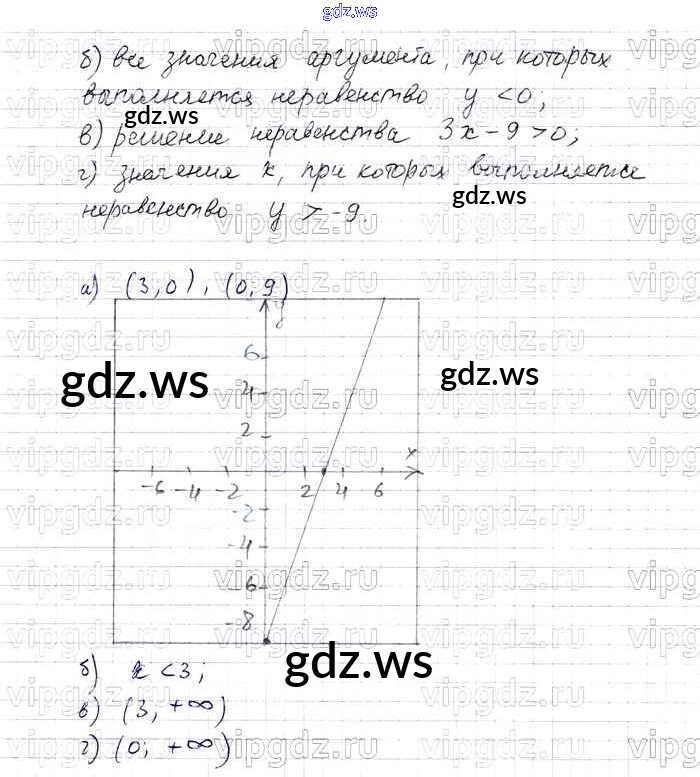 gdz.ws
б) все значения аргумента, при которых
выполняется неравенство y < 0;
gdz.ws
в) решение неравенства 3x - 9 > 0;
г) значения x, при которых выполняется
gdz.ws
неравенство y > -9.
а) (3,0), (0; 9)
y
6
gdz.ws
gdz.ws
4
2
x
-6 -4 -2 2 4 6
-2
-4
-6
-8
б) x < 3;
gdz.ws
в) (3, +∞)
г) (0; +∞)
vipgdz.ru